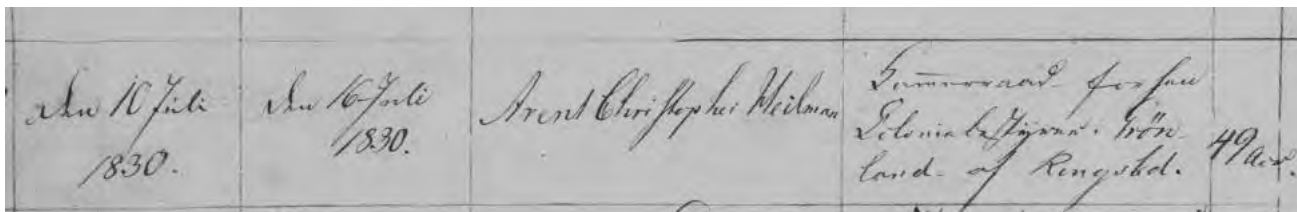 den 10 Juli
1830.
den 16 Juli
1830.
Arent Christopher Heilman
Kammerraad forhen
Coloniebestyrer. Grön-
land. af Ringsted.
49 Aar.